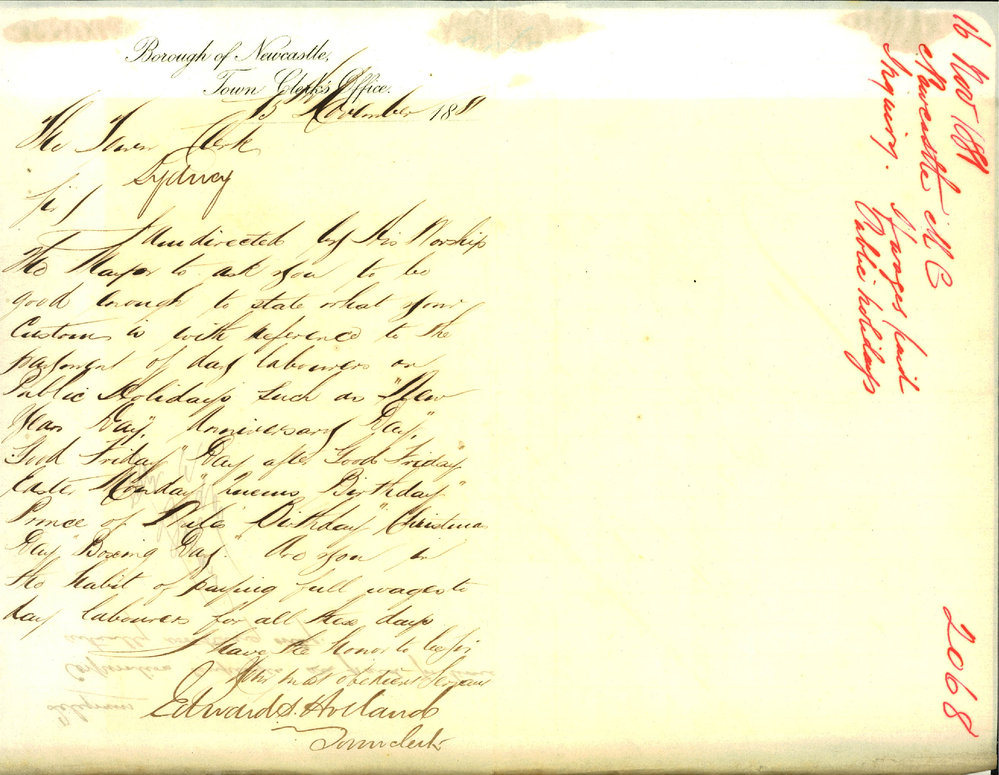 Borough of Newcastle,
Town Clerk's Office.
15 November 1881
The Town Clerk
Sydney
Sir/
I am directed by His Worship
The Mayor to ask you to be
good enough to state what your
Custom is with reference to the
payment of day labourers on
Public Holidays such as "New
Years Day", "Anniversary Day",
"Good Friday" "Day after Good Friday"
"Easter Monday" "Queens Birthday"
"Prince of Wales Birthday" "Christmas
Day" "Boxing Day." Are you in
the habit of paying full wages to
day labourers for all these days
I have the honor to be Sir
Your most obedient Servant
Edward S. Holland
Town Clerk
16 Nov 1881
Newcastle M C
Inquiry. If wages paid
Public holidays
2068